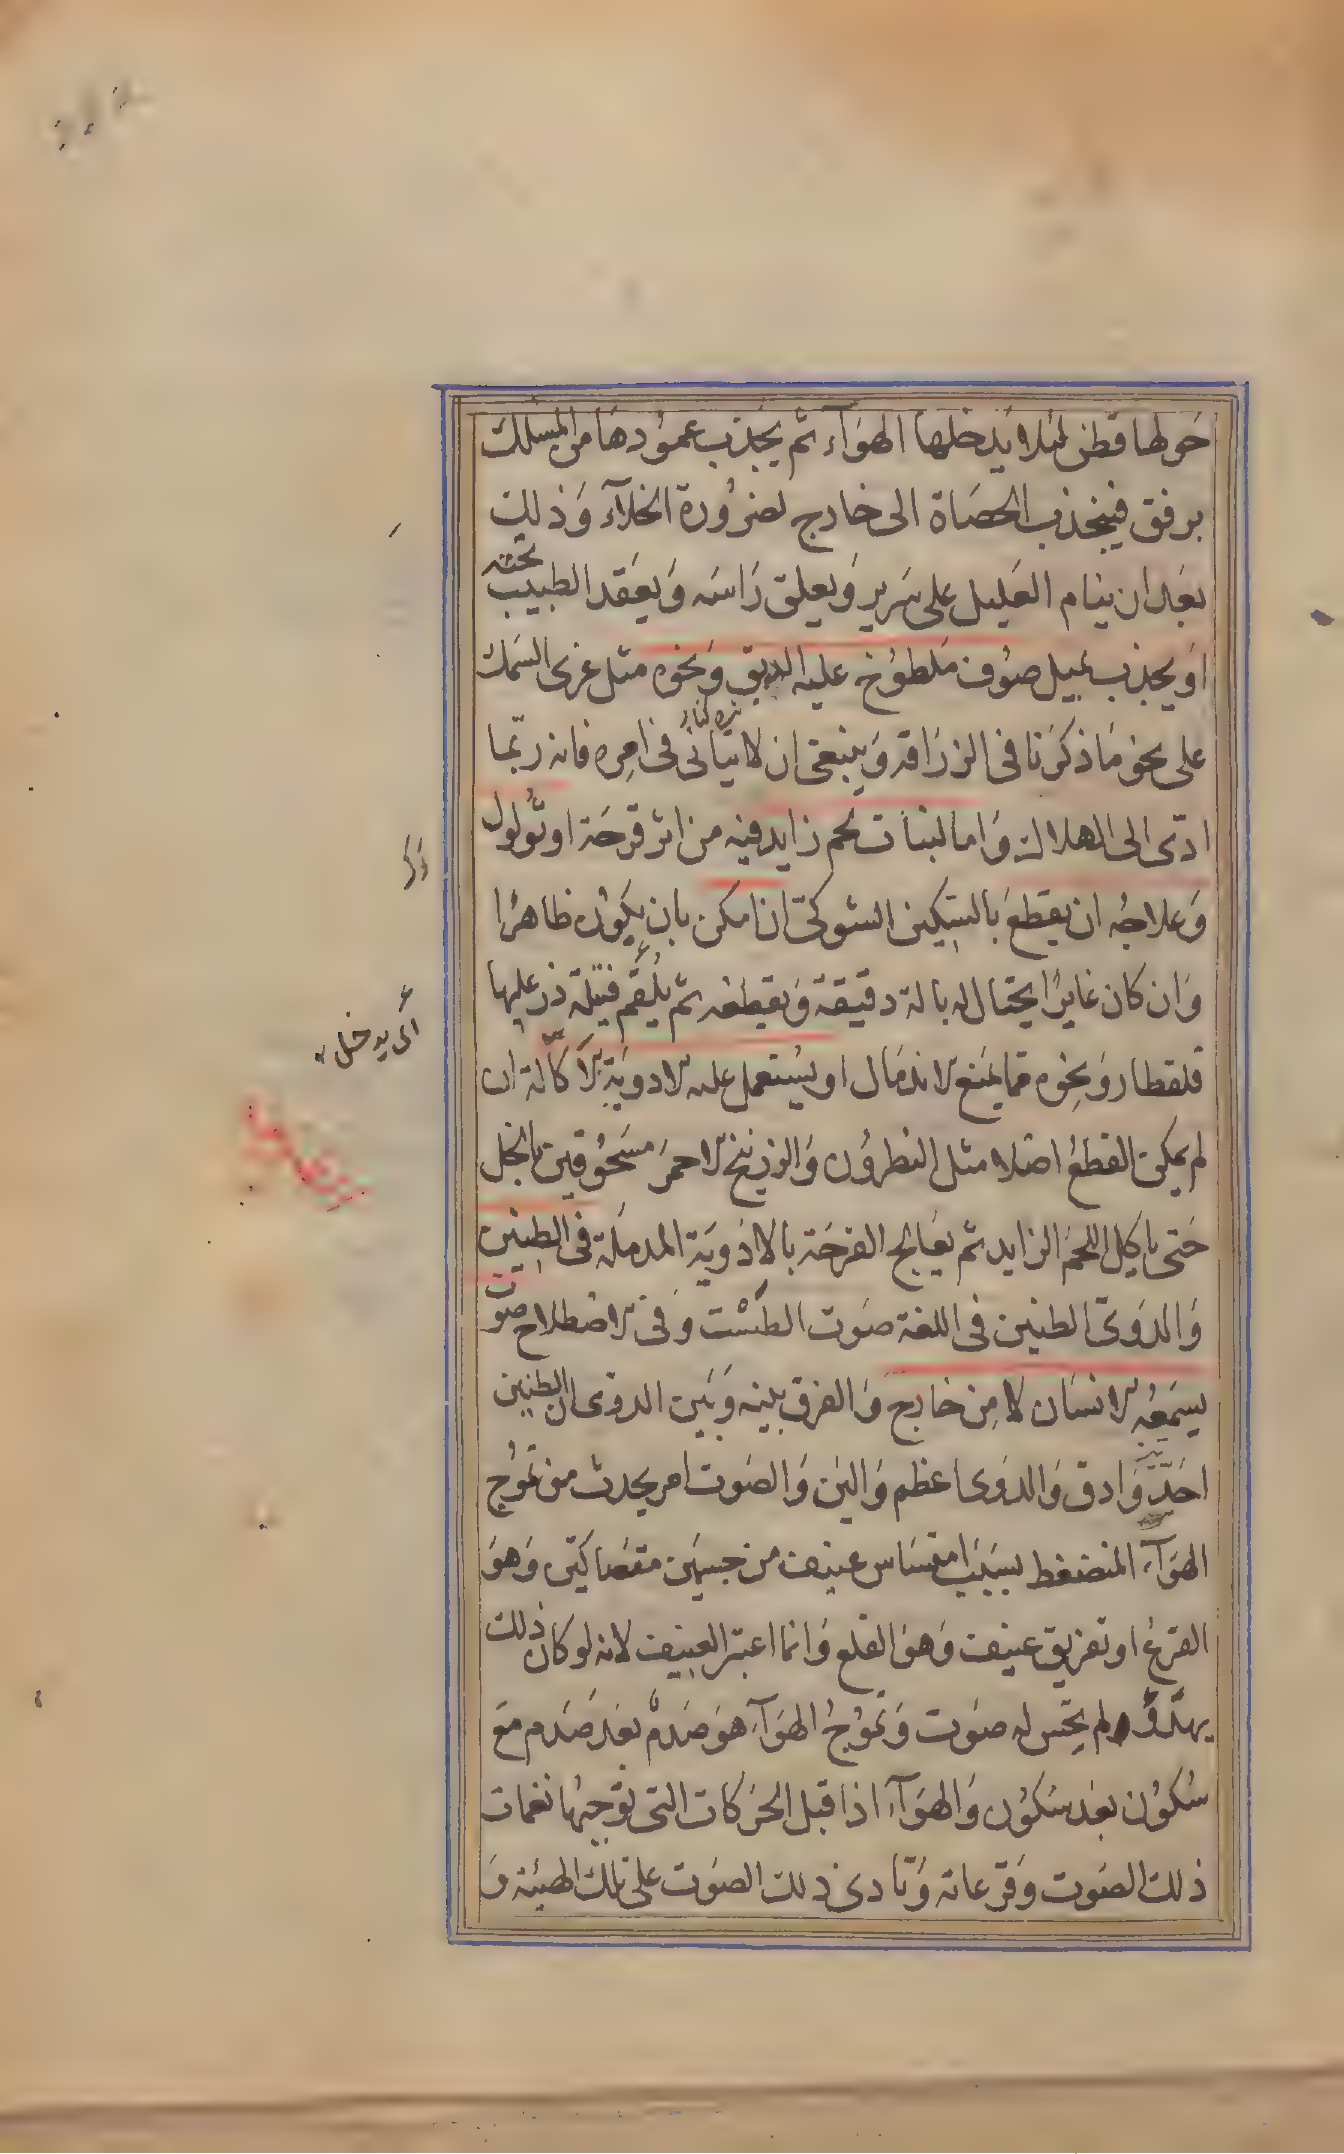 حولها قطن لئلا يدخلها الهوآء ثم يجذب عمودها من المسلك
برفق فينجذب الحصاة الى خارج لضرورة الخلآء وذلك
بعد ان ينام العليل على سرير ويعلق راسه ويعقد الطبيب تحته
او يجذب بميل صوف ملطوخ عليه الدبق ونحوه مثل غرى السمك
على نحو ما ذكرنا فى الزراقة وينبغى ان لا يتأنى فى امره فانه ربّما
ادّى الى الهلاك واما لنبات لحم زايد فيه من اثر قرحة او ثؤلول
وعلاجه ان يقطع بالسكين الشوكىّ ان امكن بان يكون ظاهرًا
وان كان غايرًا يحتال له بالة دقيقة ويقطعه ثم يلقم فتيلة ذر عليها
قلقطار ونحوه مما يمنع الاندمال او يستعمل عليه الادوية الاكّالة ان
لم يمكن القطع اصلا مثل النطرون والزرنيخ الاحمر مسحوقين بالخل
حتى ياكل اللحم الزايد ثم يعالج القرحة بالادوية المدملة فى الطنين
والدوىّ الطنين فى اللغة صوت الطشت وفى الاصطلاح صوت
يسمعه الانسان لا من خارج والفرق بينه وبين الدوى ان الطنين
احدّ وادق والدوى اعظم والين والصوت امر يحدث من تموج
الهوآء المنضغط بسبب امتساس عنيف من جسمين متصاكين وهو
القرع او تفريق عنيف وهو القلع وانما اعتبر العنيف لانه لو كان ذلك
لم يحس له صوت وتموج الهوآء هو صدم بعد صدم مع
سكون بعد سكون والهوآء اذا قبل الحركات التى توجبها نغمات
ذلك الصوت وقرعاته وتادى ذلك الصوت على تلك الهيئة و
اى يدخل